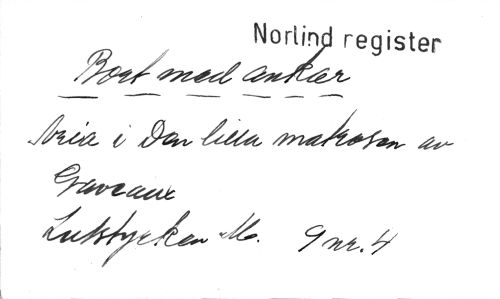 Norlind register
Bort med ankar
Aria i Den lilla matrosen av
Gaveaux
Lutstycken M. 9 nr. 4